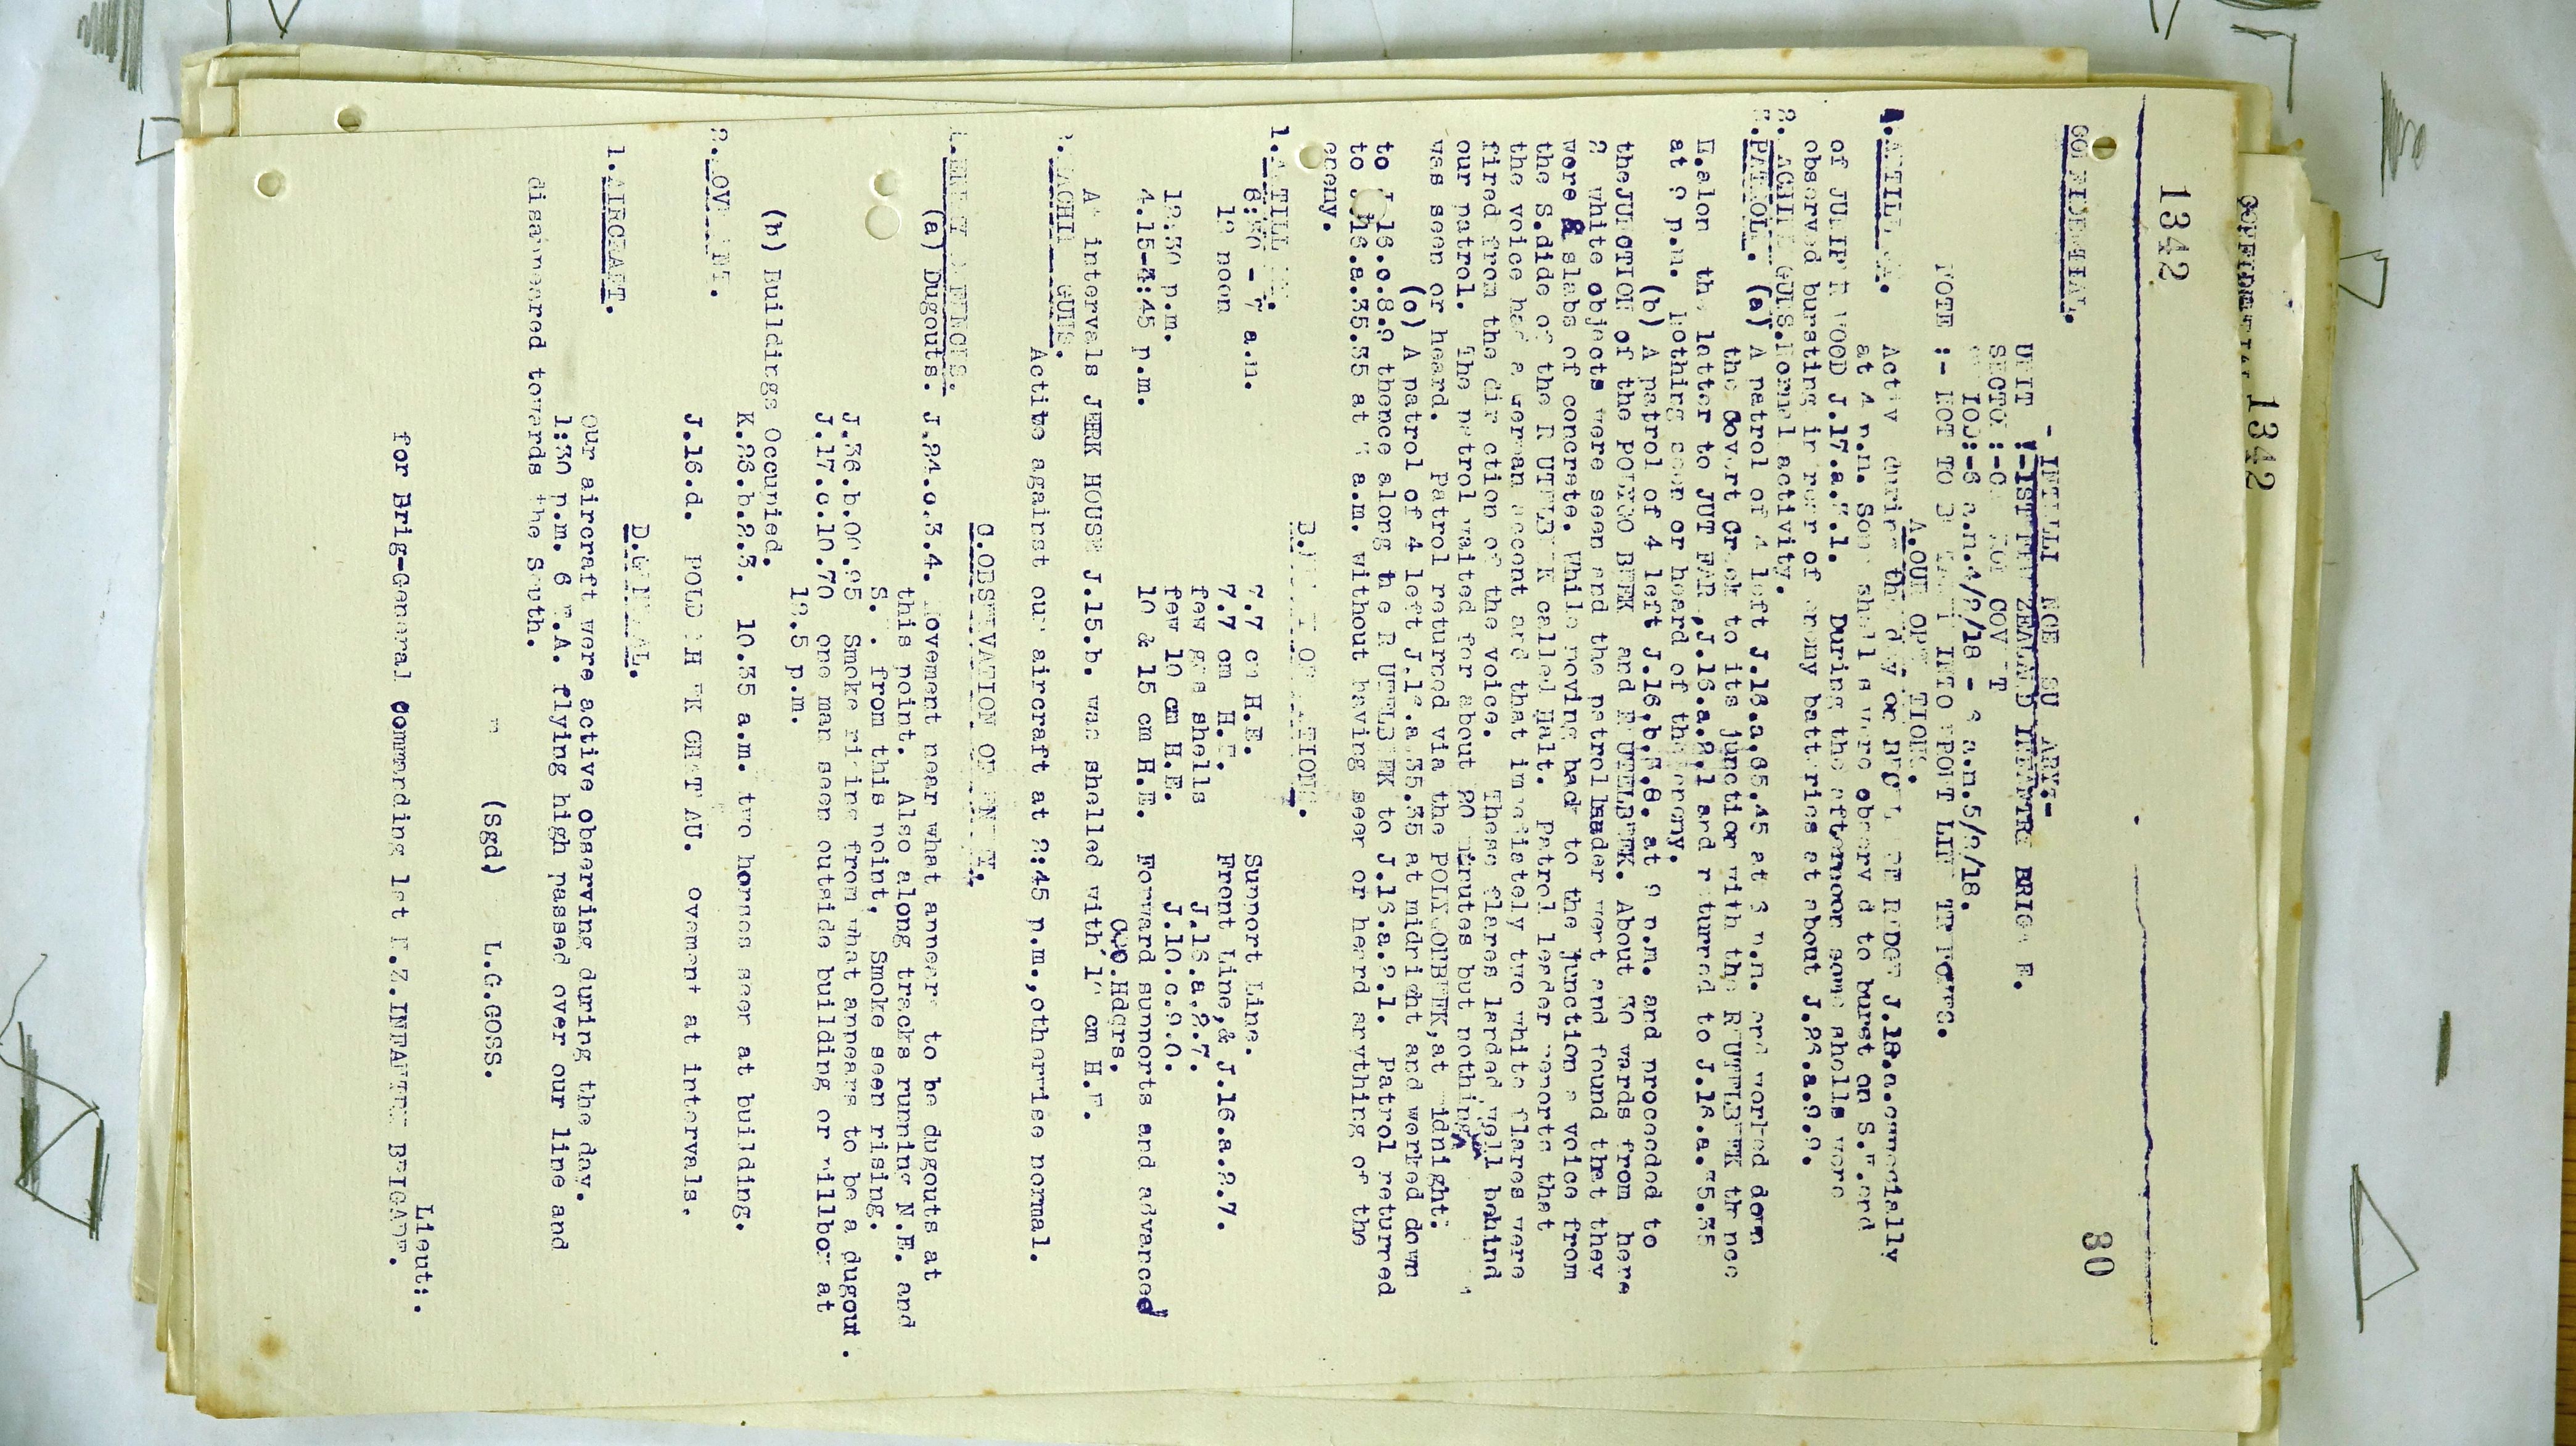 1342
1342
80
CONFIDENTIAL.
- INTELLIGENCE SUMMARY:-
UNIT :-1ST NEW ZEALAND INFANTRY BRIGADE.
SECTOR :-
:-6 a.m.4/2/18 - 6 a.m.5/2/18.
NOTE :- NOT TO BE TAKEN INTO FRONT LINE TRENCHES.
A.OUR OPERATIONS.
1.ARTILLERY. Active during the day on J.18.a.especially
at 4 p.m. Some shells were observed to burst on S.E.and
of JUNIPER WOOD J.17.a. During the afternoon some shells were
observed bursting in rear of enemy batteries at about J.26.a.9.9.
2. MACHINE GUNS.Normal activity.
3.PATROL. (a) A patrol of 4 left J.16.a.65.45 at 6 p.m. and worked down
the to its junction with the REUTELBEEK thence
E.along the latter to JUT FARM,J.16.a.2.1 and returned to J.16.a.35.35
at 9 p.m. Nothing seen or heard of the enemy.
(b) A patrol of 4 left J.16.b. at 9 p.m. and proceeded to
theJUNCTION of the POLYGO BEEK and REUTELBEEK. About 30 yards from here
2 white objects were seen and the patrol leader went and found that they
were slabs of concrete. While moving back to the junction a voice from
the S.dide of the REUTELBEEK called Halt. Patrol leader reports that
the voice had a German accent and that immediately two white flares were
fired from the direction of the voice. These flares landed well behind
our patrol. The patrol waited for about 20 minutes but nothing
was seen or heard. Patrol returned via the POLYGONBEEK,at midnight.
(c) A patrol of 4 left J.16.a.35.35 at midnight and worked down
to J.16.c.8.9 thence along the REUTELBEEK to J.16.a.2.1. Patrol returned
to J.16.a.35.35 at a.m. without having seen or heard anything of the
enemy.
B.ENEMY OPERATIONS.
1.ARTILLERY.
6:30 - 7 a.m. 7.7 cm H.E. Support Line.
12 noon 7.7 cm H.E. Front Line,& J.16.a.2.7.
few gas shells J.16.a.2.7.
12:30 p.m. few 10 cm H.E. J.10.c.9.0.
4.15-4:45 p.m. 10 & 15 cm H.E. Forward supports and advanced
Coy.Hdqrs.
At intervals JERK HOUSE J.15.b. was shelled with 15 cm H.E.
2.MACHINE GUNS.
Active against our aircraft at 2:45 p.m.,otherwise normal.
C.OBSERVATION OF ENEMY.
1.ENEMY DEFENCES.
(a) Dugouts. J.24.c.3.4. Movement near what appears to be dugouts at
this point. Also along tracks running N.E. and
S.E. from this point,
J.36.b.00.95 Smoke rising from what appears to be a dugout. Smoke seen rising.
J.17.c.10.70 one man seen outside building or pillbox at
12.5 p.m.
(b) Buildings Occupied.
K.26.b.2.3. 10.35 a.m. two horses seen at building.
2.MOVEMENT.
J.16.d. POLDERHOEK CHATEAU. Movement at intervals.
D.GENERAL.
1.AIRCRAFT.
our aircraft were active observing during the day.
1:30 p.m. 6 E.A. flying high passed over our line and
disappeared towards the South.
(Sgd) L.G.GOSS.
Lieut:.
for Brig-General Commanding 1st N.Z.INFANTRY BRIGADE.